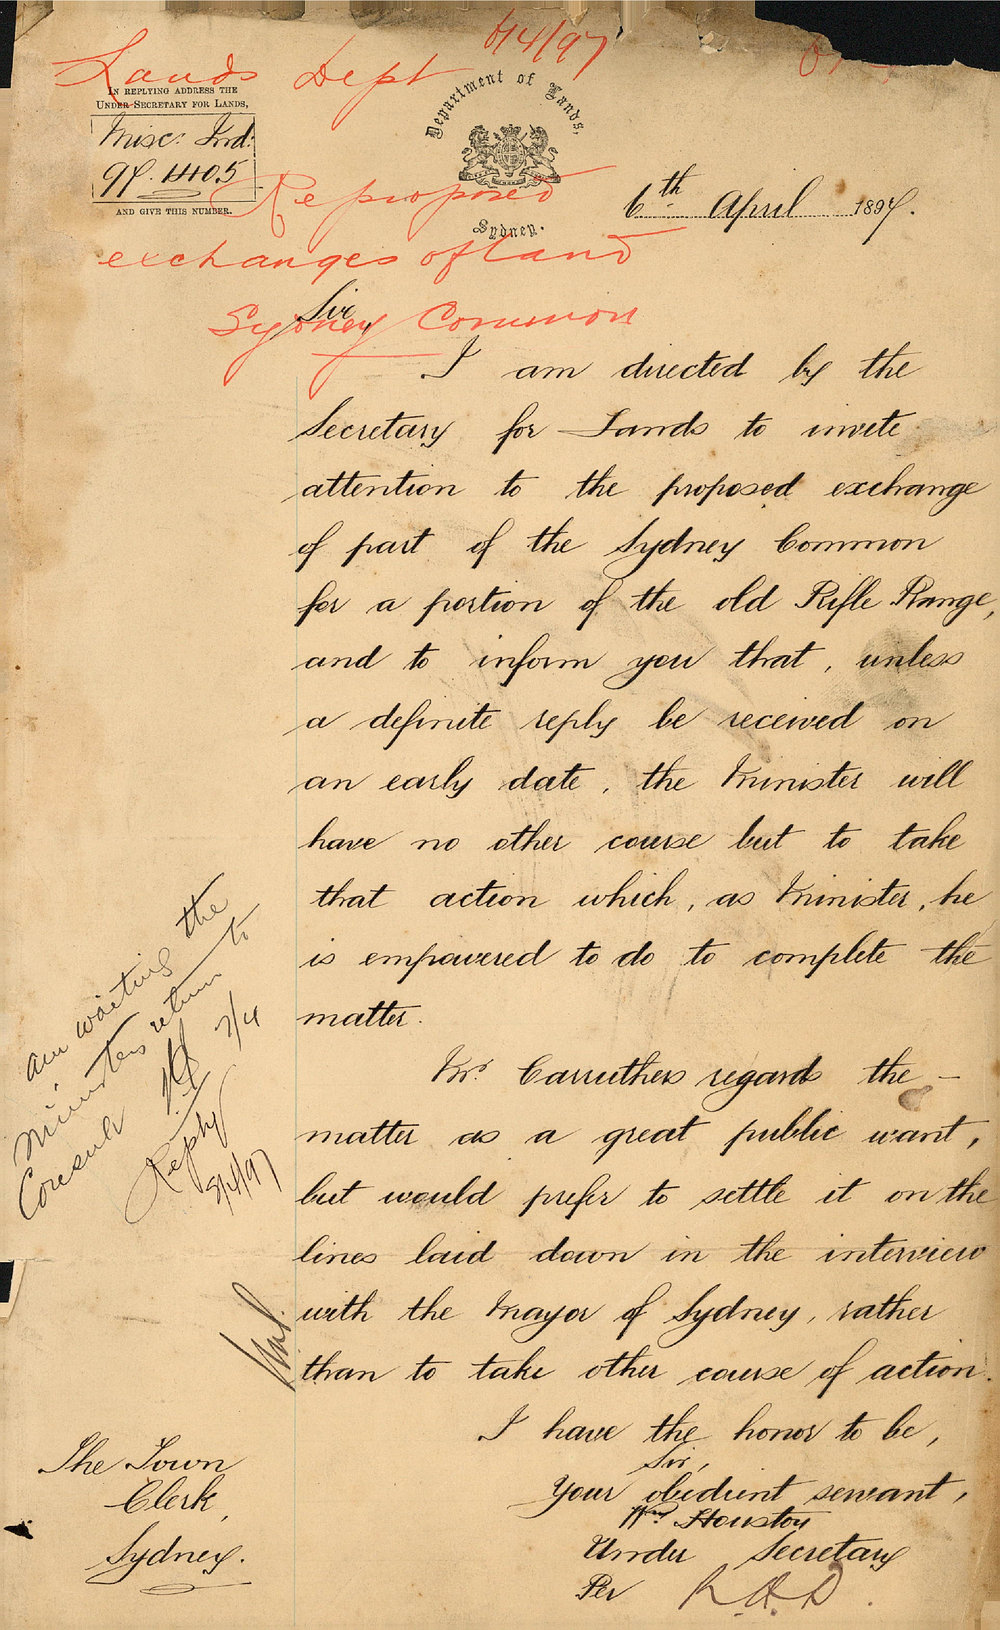 Lands Dept 6/4/97
IN REPLYING ADDRESS THE
UNDER SECRETARY FOR LANDS,
Misc:
97.4405
AND GIVE THIS NUMBER.
Department of Lands,
Sydney.
6th April 1897.
Re proposed
exchanges of land
Sydney Common
Sir,
I am directed by the
Secretary for Lands to invite
attention to the proposed exchange
of part of the Sydney Common
for a portion of the old Rifle Range,
and to inform you that, unless
a definite reply be received on
an early date, the Minister will
have no other course but to take
that action which, as Minister, he
is empowered to do to complete the
matter.
Mr. Carruthers regards the -
matter as a great public want,
but would prefer to settle it on the
lines laid down in the interview
with the Mayor of Sydney, rather
than to take other course of action.
I have the honor to be,
Sir,
Your obedient servant,
Wm Houston
Under Secretary
Per
The Town
Clerk,
Sydney.
am waiting the
Ministers return to
7/4
Reply
8/4/97